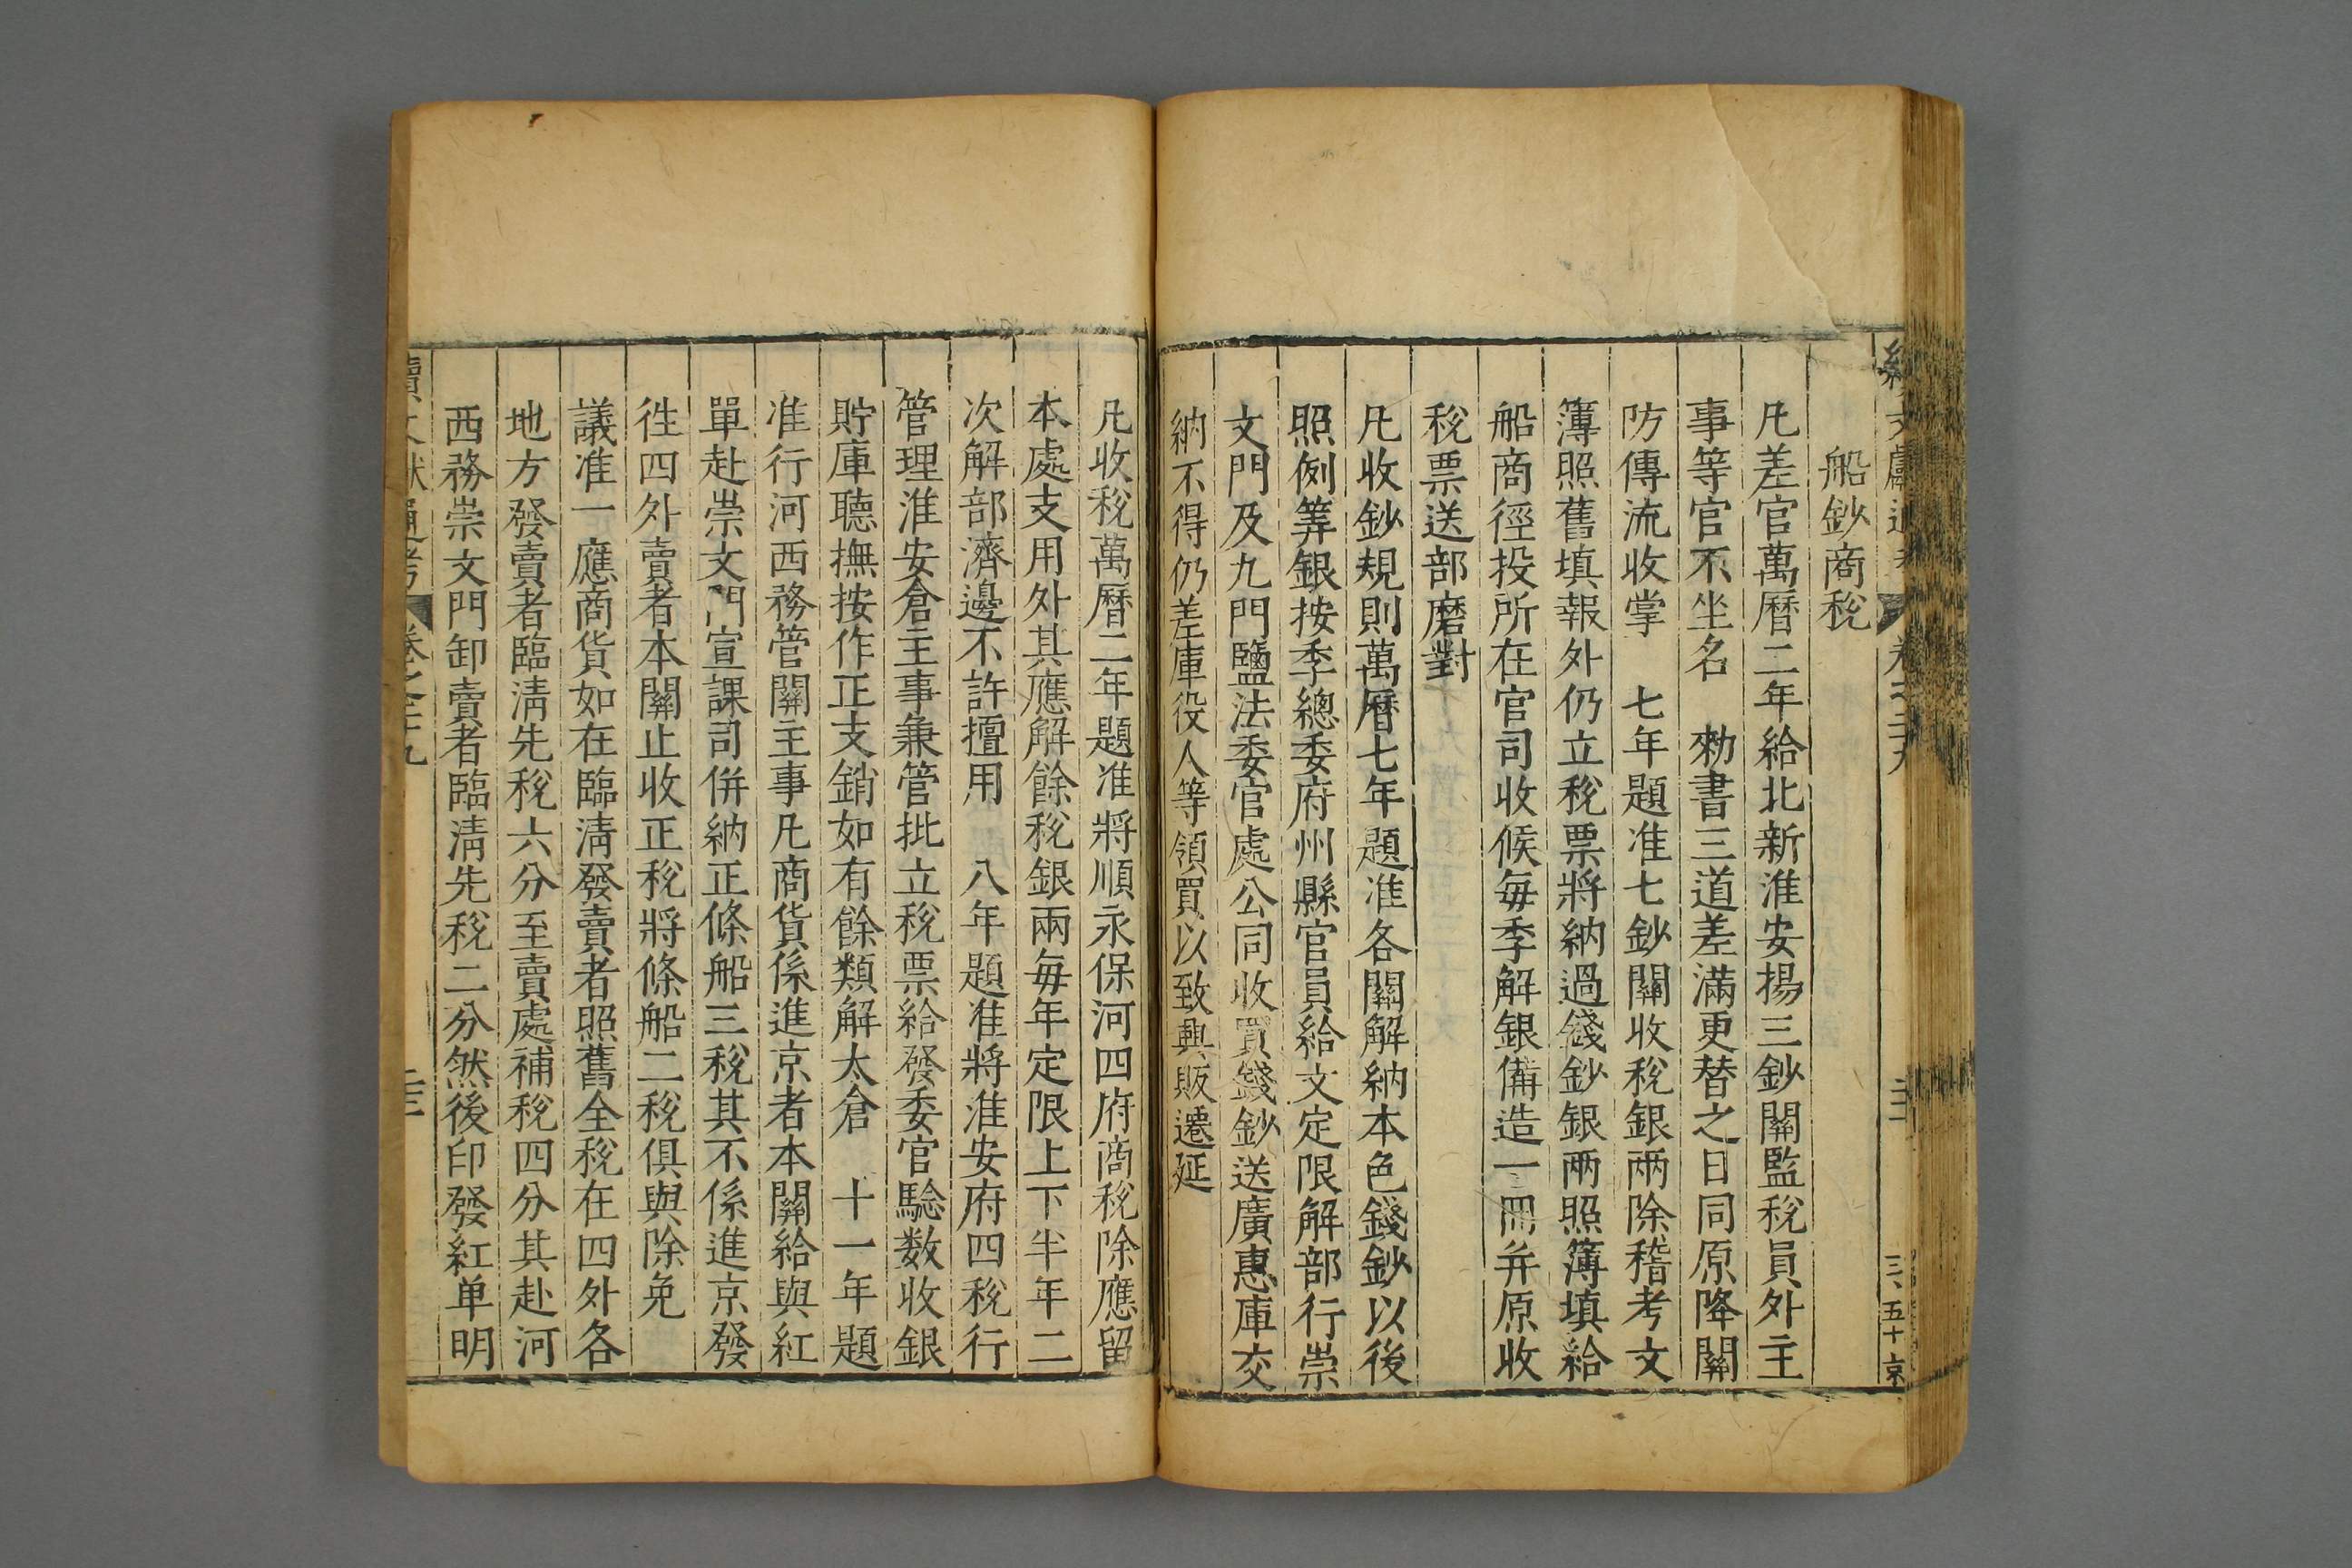 船鈔商稅
凡差官萬曆二年給北新淮安揚三鈔關監稅員外主
事等官不坐名　勑書三道差滿更替之日同原降關
防傳流收掌　七年題准七鈔關收稅銀兩除稽考文
簿照舊填報外仍立稅票將納過錢鈔銀兩照簿填給
船商徑投所在官司收候每季解銀備造一冊并原收
稅票送部磨對
凡收鈔規則萬曆七年題准各關解納本色錢鈔以後
照例筭銀按季總委府州縣官員給文定限解部行崇
文門及九門鹽法委官處公同收買錢鈔送廣惠庫交
納不得仍差庫役人等領買以致興販遷延
凡收稅萬曆二年題准將順永保河四府商稅除應留
本處支用外其應解餘稅銀兩每年定限上下半年二
次解部濟邊不許擅用　八年題准將淮安府四稅行
管理淮安倉主事兼管批立稅票給發委官驗数收銀
貯庫聽撫按作正支銷如有餘類解太倉　十一年題
准行河西務管關主事凡商貨係進京者本關給與紅
單赴崇文門宣課司併納正條船三稅其不係進京發
徃四外賣者本關止收正稅將條船二稅俱與除免
議准一應商貨如在臨淸發賣者照舊全稅在四外各
地方發賣者臨淸先稅六分至賣處補稅四分其赴河
西務崇文門卸賣者臨淸先稅二分然後印發紅单明